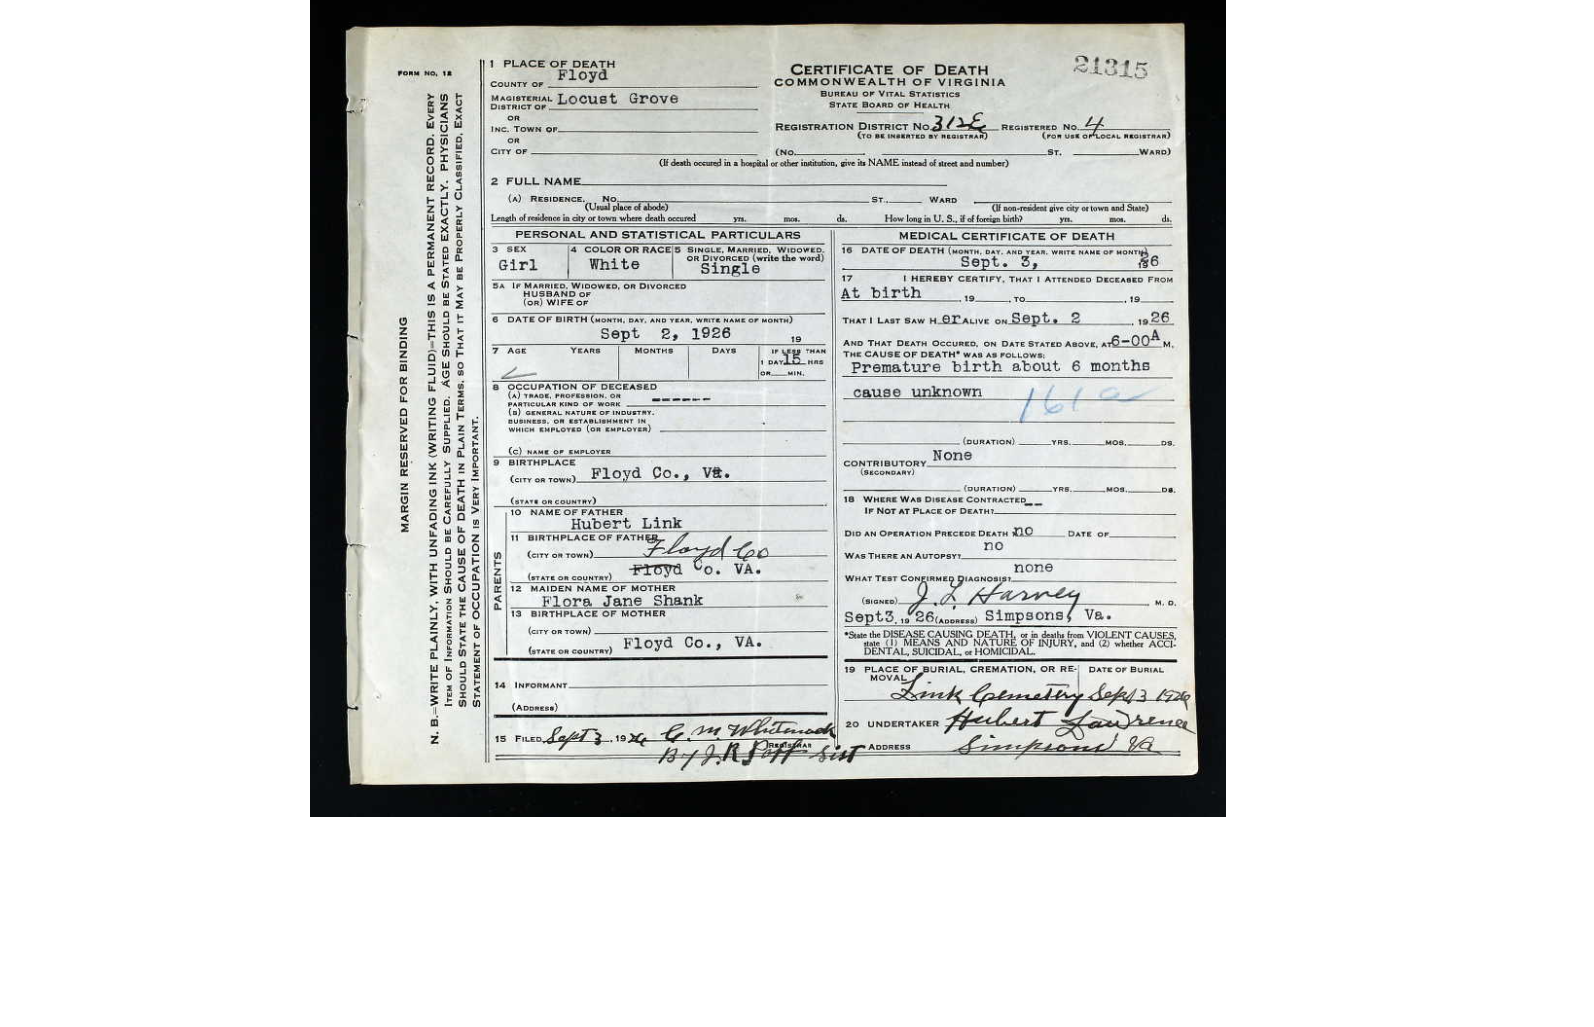 FORM NO. 18
MARGIN RESERVED FOR BINDING
N. B.—WRITE PLAINLY, WITH UNFADING INK (WRITING FLUID)—THIS IS A PERMANENT RECORD. EVERY
ITEM OF INFORMATION SHOULD BE CAREFULLY SUPPLIED. AGE SHOULD BE STATED EXACTLY. PHYSICIANS
SHOULD STATE THE CAUSE OF DEATH IN PLAIN TERMS, SO THAT IT MAY BE PROPERLY CLASSIFIED. EXACT
STATEMENT OF OCCUPATION IS VERY IMPORTANT.
1 PLACE OF DEATH
COUNTY OF Floyd
MAGISTERIAL DISTRICT OF Locust Grove
OR
INC. TOWN OF
OR
CITY OF
CERTIFICATE OF DEATH
COMMONWEALTH OF VIRGINIA
BUREAU OF VITAL STATISTICS
STATE BOARD OF HEALTH
21315
REGISTRATION DISTRICT NO. 312E REGISTERED NO. 4
(TO BE INSERTED BY REGISTRAR) (FOR USE OF LOCAL REGISTRAR)
(NO. ST. WARD)
(If death occured in a hospital or other institution, give its NAME instead of street and number)
2 FULL NAME
(A) RESIDENCE. NO. ST., WARD
(Usual place of abode) (If non-resident give city or town and State)
Length of residence in city or town where death occured yrs. mos. ds. How long in U. S., if of foreign birth? yrs. mos. ds.
PERSONAL AND STATISTICAL PARTICULARS
3 SEX Girl
4 COLOR OR RACE White
5 SINGLE, MARRIED, WIDOWED, OR DIVORCED (write the word) Single
5A IF MARRIED, WIDOWED, OR DIVORCED
HUSBAND OF
(OR) WIFE OF
6 DATE OF BIRTH (MONTH, DAY, AND YEAR, WRITE NAME OF MONTH)
Sept 2, 1926 19
7 AGE YEARS MONTHS DAYS IF LESS THAN
1 DAY 15 HRS
OR MIN.
8 OCCUPATION OF DECEASED
(A) TRADE, PROFESSION, OR
PARTICULAR KIND OF WORK ------
(B) GENERAL NATURE OF INDUSTRY,
BUSINESS, OR ESTABLISHMENT IN
WHICH EMPLOYED (OR EMPLOYER)
(C) NAME OF EMPLOYER
9 BIRTHPLACE
(CITY OR TOWN) Floyd Co., Va.
(STATE OR COUNTRY)
PARENTS
10 NAME OF FATHER
Hubert Link
11 BIRTHPLACE OF FATHER
(CITY OR TOWN) Floyd Co
(STATE OR COUNTRY) Floyd Co. VA.
12 MAIDEN NAME OF MOTHER
Flora Jane Shank
13 BIRTHPLACE OF MOTHER
(CITY OR TOWN)
(STATE OR COUNTRY) Floyd Co., VA.
14 INFORMANT
(ADDRESS)
15 FILED Sept 3, 1926 G. M. Whitenack
REGISTRAR
By J. R. Poff
MEDICAL CERTIFICATE OF DEATH
16 DATE OF DEATH (MONTH, DAY, AND YEAR, WRITE NAME OF MONTH)
Sept. 3, 26
17 I HEREBY CERTIFY, THAT I ATTENDED DECEASED FROM
At birth , 19 , TO , 19
THAT I LAST SAW H er ALIVE ON Sept. 2 , 1926
AND THAT DEATH OCCURED, ON DATE STATED ABOVE, AT 6-00 A M.
THE CAUSE OF DEATH* WAS AS FOLLOWS:
Premature birth about 6 months
cause unknown 161a
(DURATION) YRS. MOS. DS.
CONTRIBUTORY None
(SECONDARY)
(DURATION) YRS. MOS. DS.
18 WHERE WAS DISEASE CONTRACTED --
IF NOT AT PLACE OF DEATH?
DID AN OPERATION PRECEDE DEATH no DATE OF
WAS THERE AN AUTOPSY? no
WHAT TEST CONFIRMED DIAGNOSIS? none
(SIGNED) J. L. Harvey M. D.
Sept3, 1926 (ADDRESS) Simpsons, Va.
*State the DISEASE CAUSING DEATH, or in deaths from VIOLENT CAUSES,
state (1) MEANS AND NATURE OF INJURY, and (2) whether ACCI-
DENTAL, SUICIDAL, or HOMICIDAL.
19 PLACE OF BURIAL, CREMATION, OR RE-MOVAL DATE OF BURIAL
Link Cemetery Sept 3 1926
20 UNDERTAKER Hubert Lawrence
ADDRESS Simpsons Va